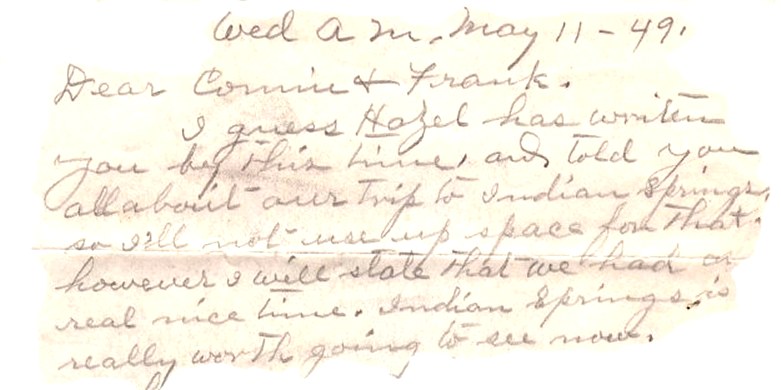 Wed A M. May 11 - 49.
Dear Connie & Frank.
I guess Hazel has written
you by this time, and told you
all about our trip to Indian Springs,
so I'll not use up space for that.
however I will state that we had a
real nice time. Indian Springs is
really worth going to see now.